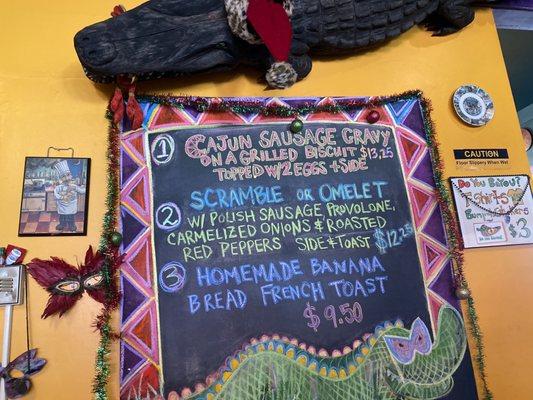 1
CAJUN SAUSAGE GRAVY
ON A GRILLED BISCUIT $13.25
TOPPED W/2 EGGS + SIDE
2
SCRAMBLE OR OMELET
W/ POLISH SAUSAGE, PROVOLONE,
CARMELIZED ONIONS & ROASTED
RED PEPPERS SIDE & TOAST $12.25
3
HOMEMADE BANANA
BREAD FRENCH TOAST
$9.50
CAUTION
SLIPPERY WHEN WET
DO YOU BAYOU?
T-SHIRTS
BUMPER STICKERS
$3